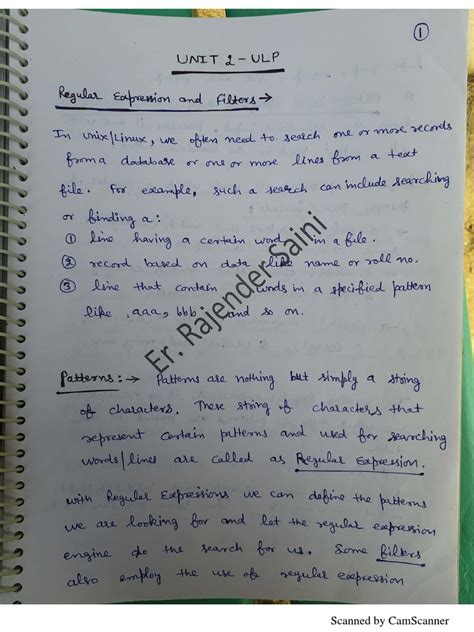 1
UNIT 2 - ULP
Regular Expression and Filters →
In Unix/Linux, we often need to search one or more records
from a database or one or more lines from a text
file. For example, such a search can include searching
or finding a:
① line having a certain word in a file.
② record based on data like name or roll no.
③ line that contain words in a specified pattern
like, aaa, bbb and so on.
Er. Rajender Saini
Patterns: → Patterns are nothing but simply a string
of characters. These string of characters that
represent certain patterns and used for searching
words/lines are called as Regular Expression.
with Regular Expressions we can define the patterns
we are looking for and let the regular expression
engine do the search for us. Some filters
also employ the use of regular expression
Scanned by CamScanner